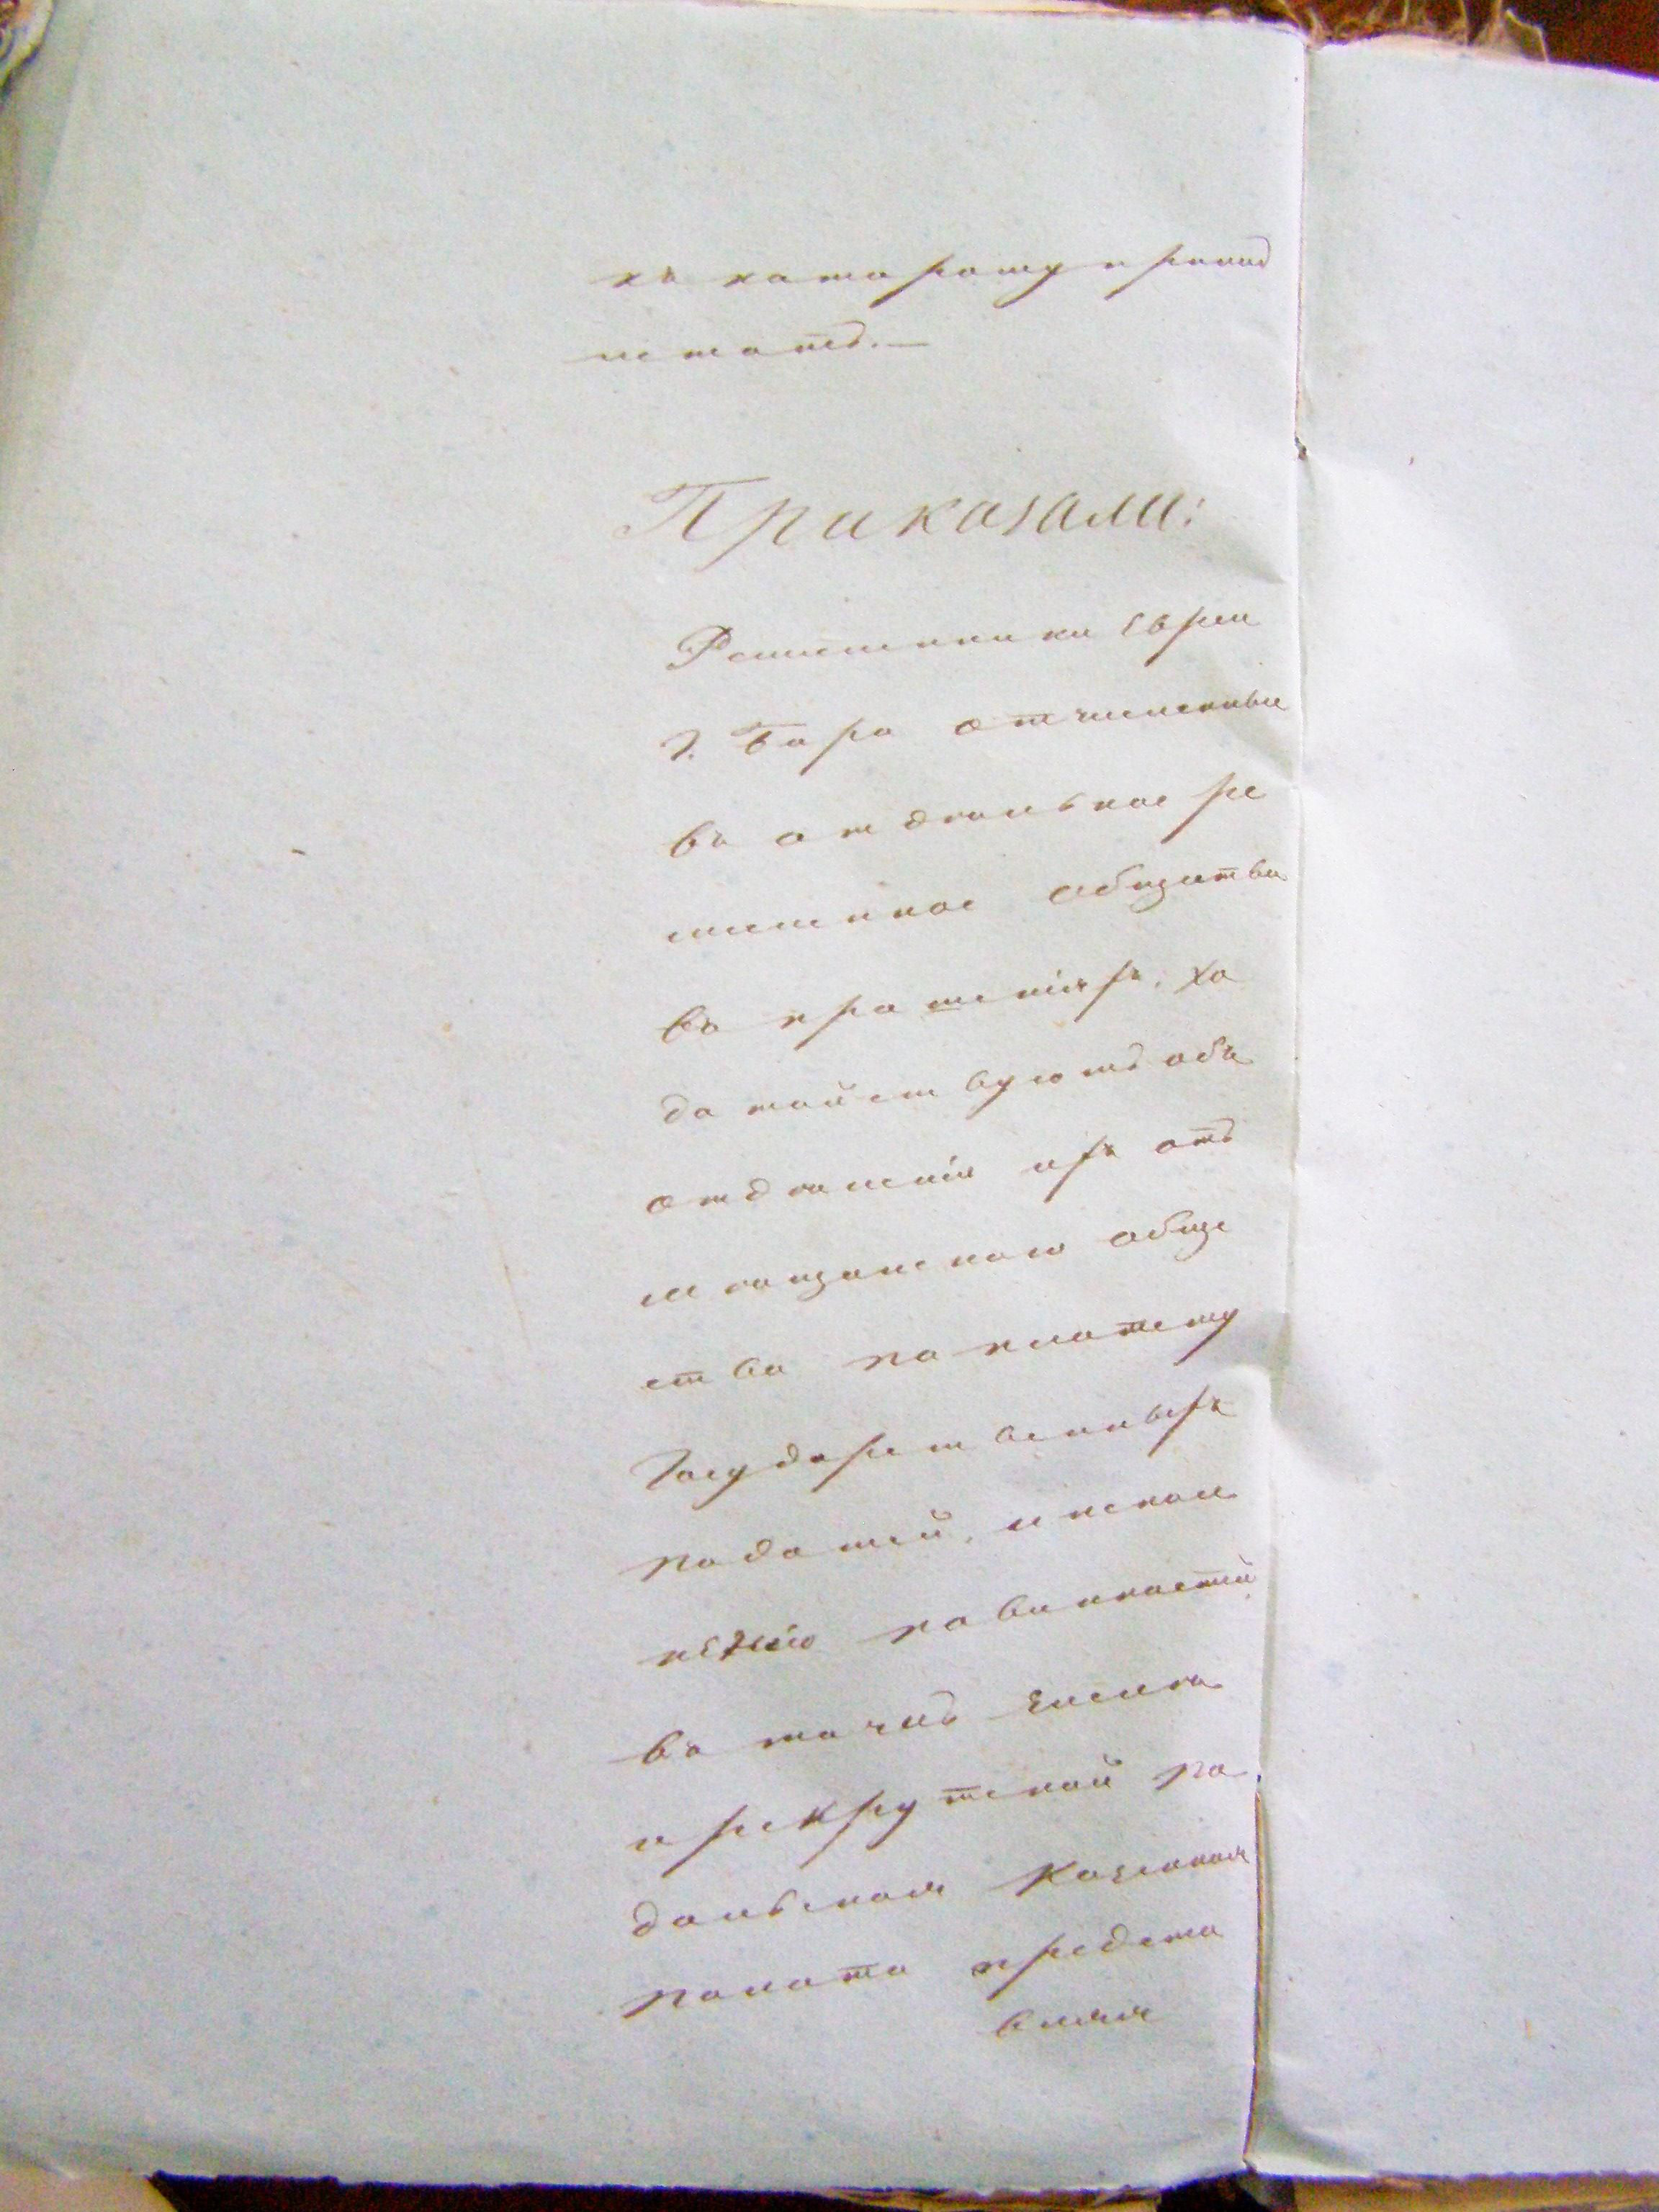 къ которому принад
лежатъ.—
Приказали:
Ремесленники Евреи
г. Бара отчисленные
въ отдѣльное ре
месленное общество
въ прошеніяхъ, хо
датайствуютъ объ
отдѣленіи ихъ отъ
мѣщанскаго обще
ства по платежу
Государственныхъ
податей, и испол
ненію повинностей,
въ томъ числѣ
и рекрутской по
дольская Казенная
палата представ
вляя